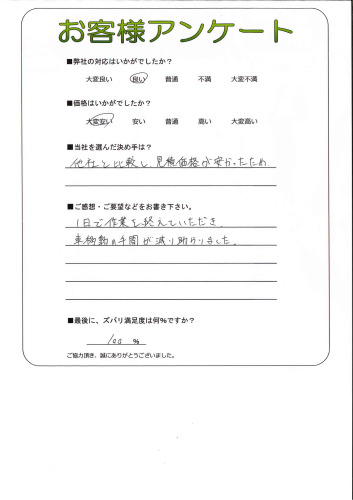 お客様アンケート
■弊社の対応はいかがでしたか？
大変良い 良い 普通 不満 大変不満
■価格はいかがでしたか？
大変安い 安い 普通 高い 大変高い
■当社を選んだ決め手は？
他社と比較し、見積価格が安かったため。
■ご感想・ご要望などをお書き下さい。
1日で作業を終えていただき、
車移動の手間が減り助かりました。
■最後に、ズバリ満足度は何%ですか？
100 %
ご協力頂き、誠にありがとうございました。